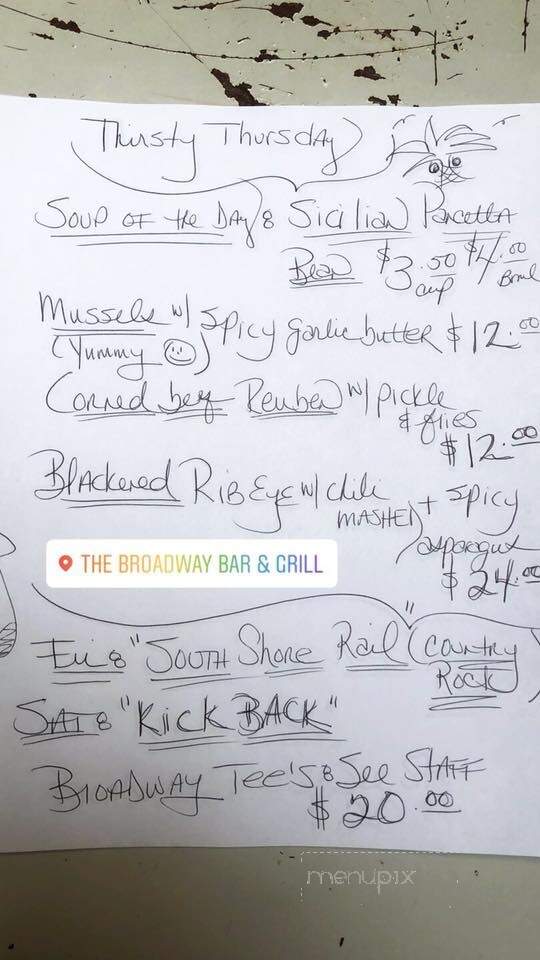 Thirsty Thursday
Soup of the Day: Sicilian Pancetta
Bean $3.50 cup $4.00 Bowl
Mussels w/ spicy garlic butter $12.00
(Yummy ☺)
Corned beef Reuben w/ pickle
& fries
$12.00
Blackened RibEye w/ chili
MASHED + spicy
asparagus
$24.00
THE BROADWAY BAR & GRILL
Fri: "South Shore Rail" (Country
Rock)
SAT: "Kick BACK"
BROADWAY Tee's: See STAFF
$20.00
menupix